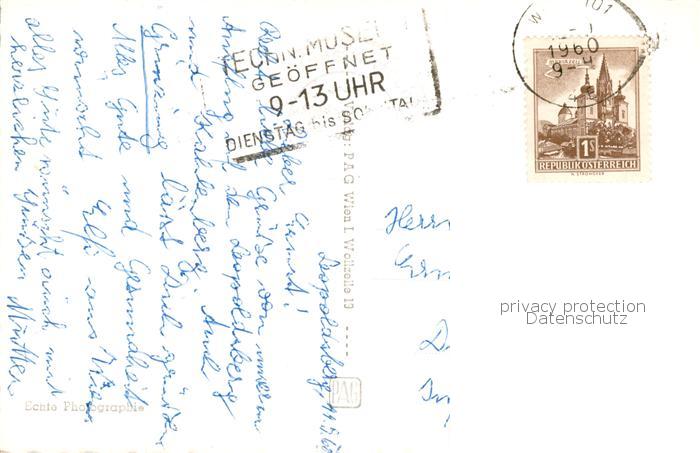 TECHN. MUSE
GEÖFFNET
9-13 UHR
DIENSTAG bis SONNTAG
W 101
1960
9-
mariazell
1S
REPUBLIK ÖSTERREICH
H. STROHOFER
Leopoldsberg, 11.9.60
Lieber Ernst!
Recht liebe Grüße von unserem
Ausflug auf den Leopoldsberg
und Kahlenberg. Auch
Grinzing lässt Dich grüßen
Alles Gute und Gesundheit
wünscht Elfi aus Wien
alles Gute wünscht auch mit
herzlichen Grüßen Mutter
PAG Wien I Wollzeile 13
PAG
Echte Photographie
Herrn
privacy protection
Datenschutz